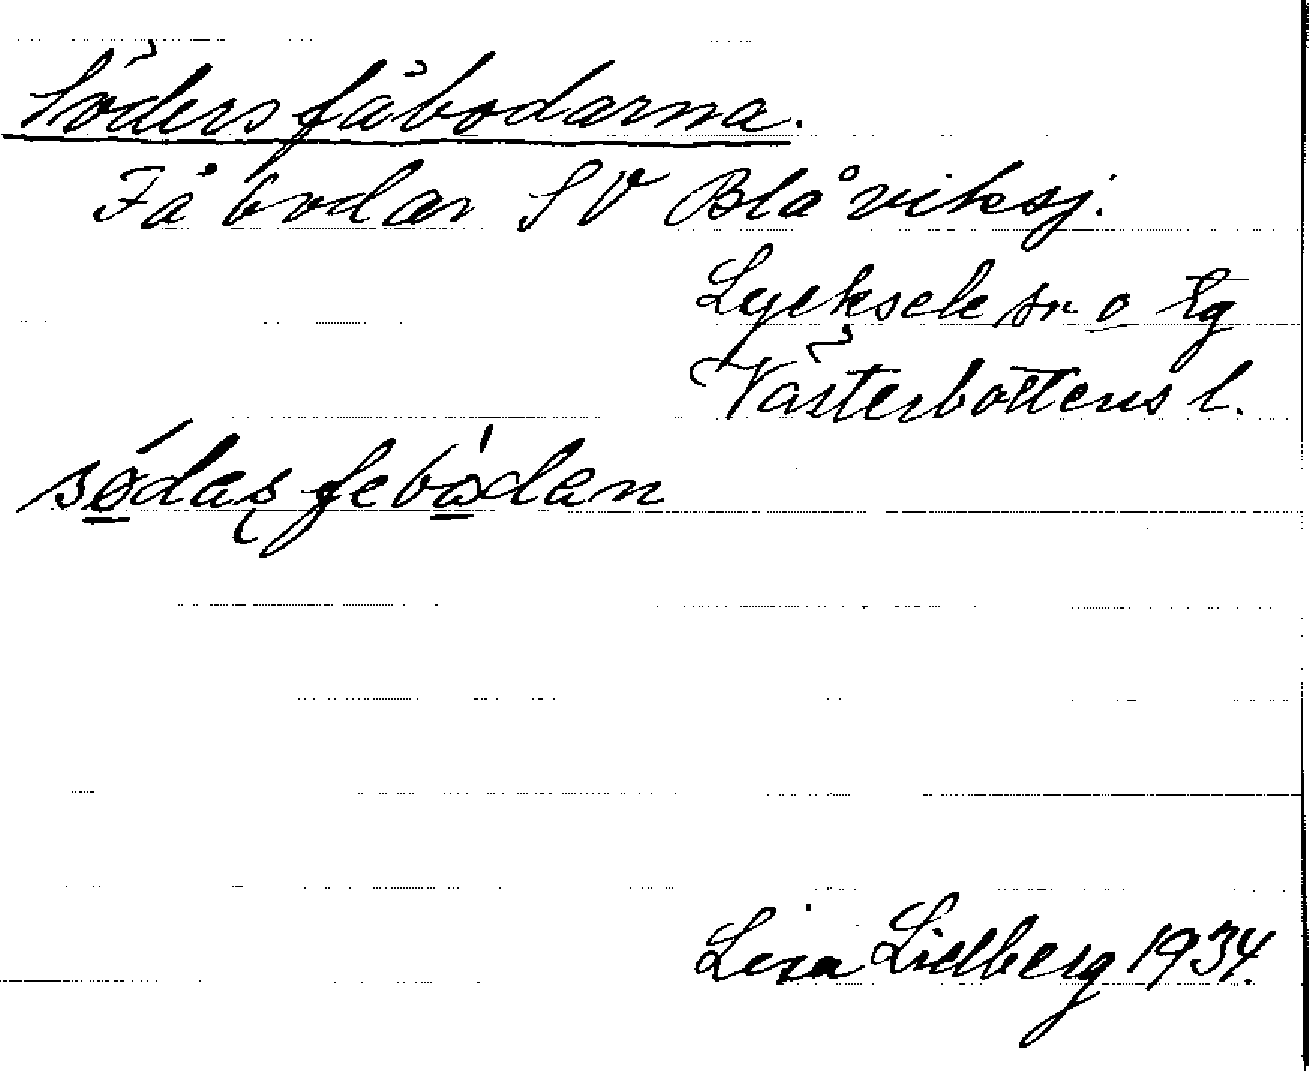 Södersfäbodarna.
Fäbodar SV Blåviksj.
Lycksele sn o tg
Västerbottens l.
södas̨ febodan
Lisa Lidberg 1934.